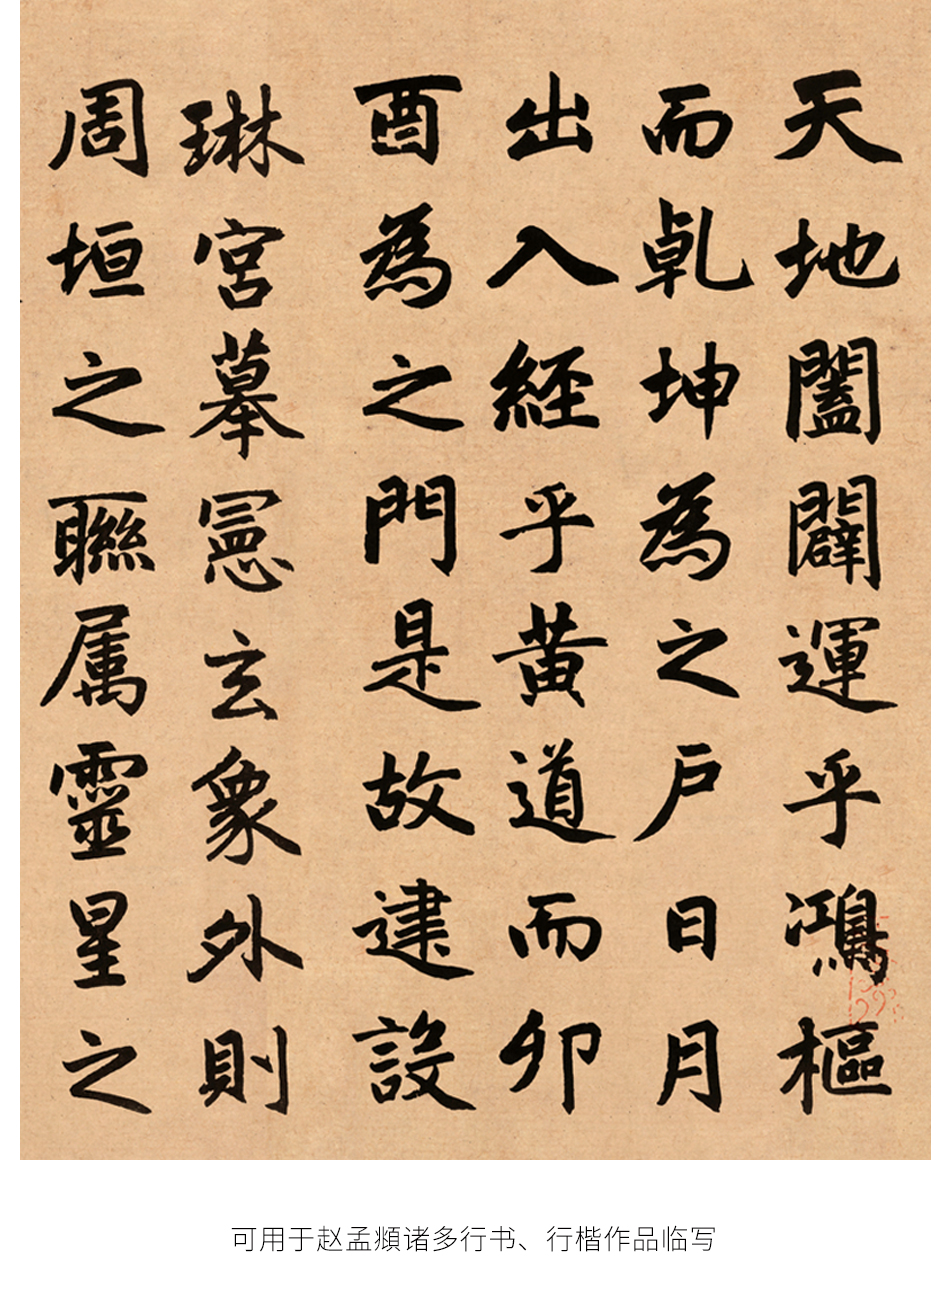 天地闔闢運乎鴻樞
而乹坤為之户日月
出入經乎黄道而卯
酉為之門是故建設
琳宫摹憲玄象外則
周垣之聮属靈星之
可用于赵孟頫诸多行书、行楷作品临写